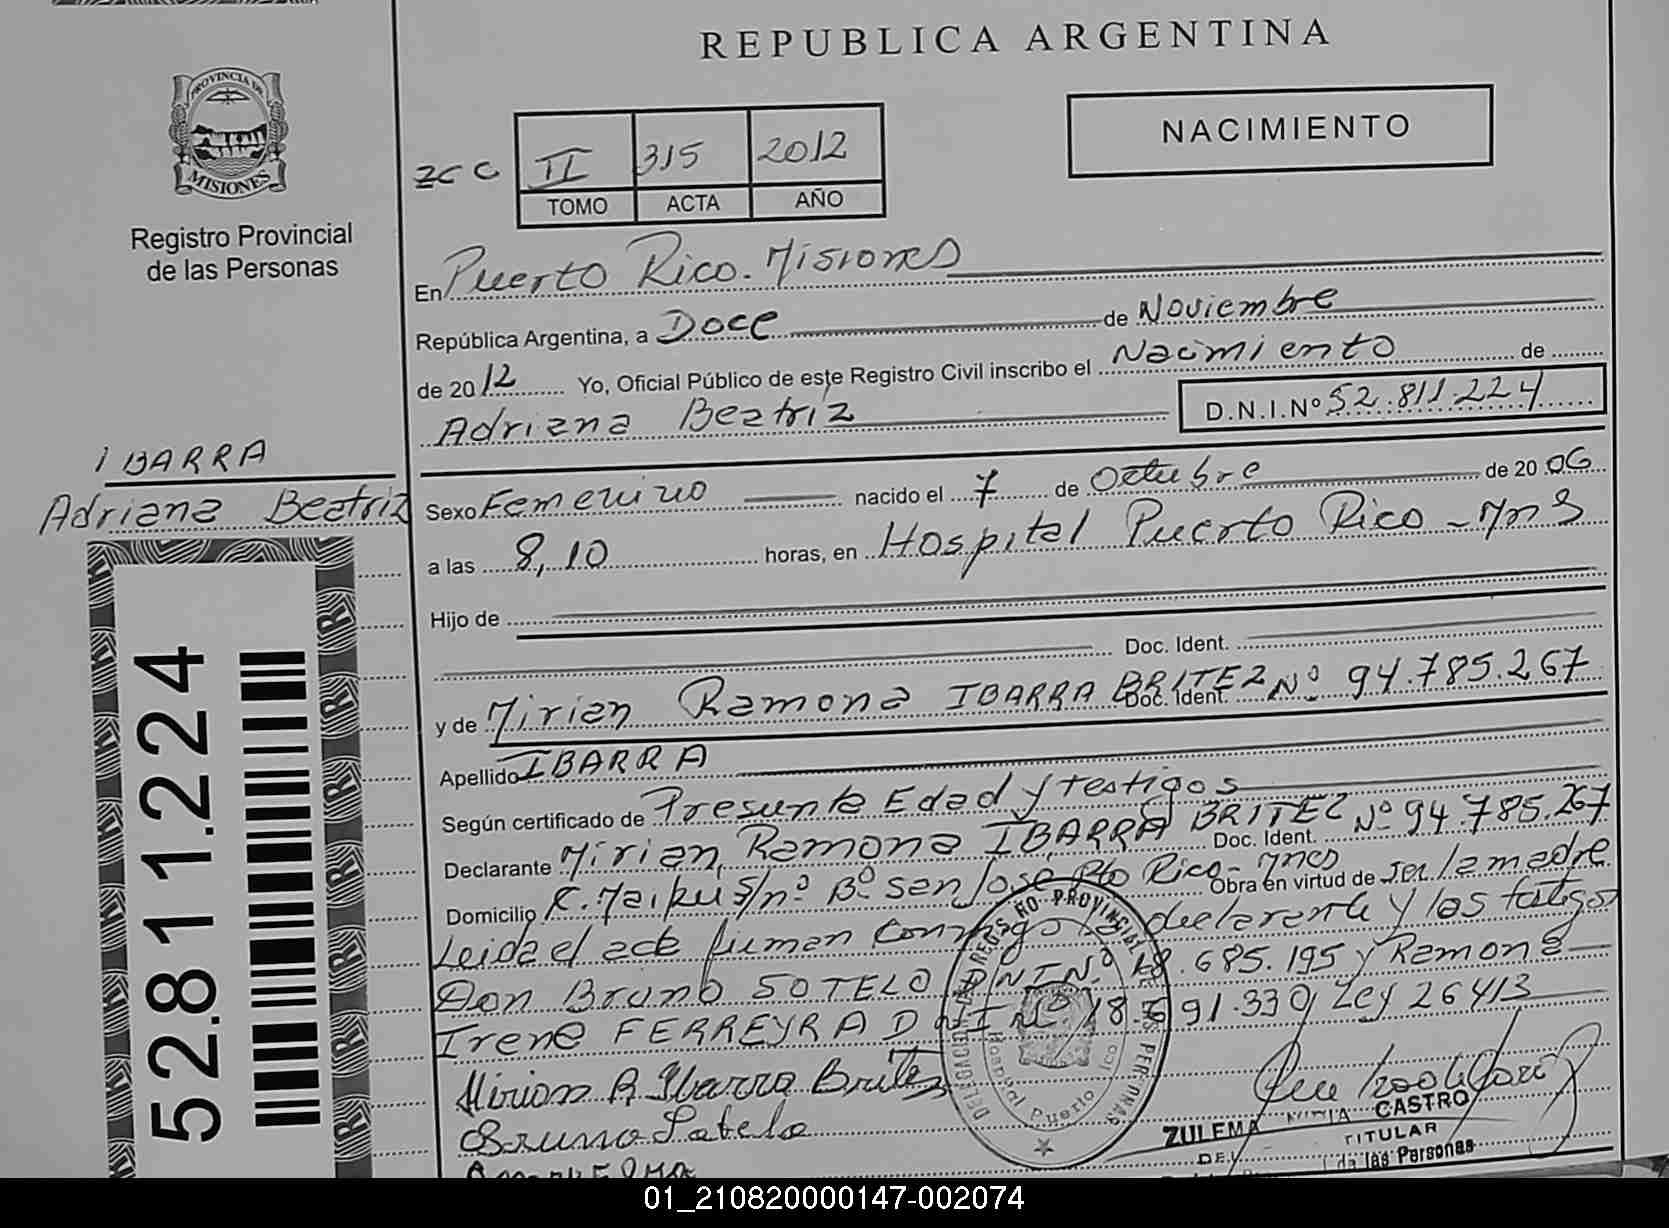 REPUBLICA ARGENTINA
PROVINCIA DE
MISIONES
Registro Provincial
de las Personas
NACIMIENTO
II 315 2012
TOMO ACTA AÑO
En Puerto Rico. Misiones
República Argentina, a Doce de Noviembre
de 2012 Yo, Oficial Público de este Registro Civil inscribo el Nacimiento de
Adriana Beatriz D.N.I.Nº 52.811.224
IBARRA
Adriana Beatriz
Sexo Femenino nacido el 7 de Octubre de 2006
a las 8,10 horas, en Hospital Puerto Rico - Mns
Hijo de
Doc. Ident.
y de Mirian Ramona IBARRA BRITEZ Doc. Ident. Nº 94.785.267
Apellido IBARRA
Según certificado de Presunta Edad y testigos
Declarante Mirian Ramona IBARRA BRITEZ Doc. Ident. Nº 94.785.267
Domicilio C. Maipu S/nº Bº San Jose Pto Rico - Mnes Obra en virtud de ser la madre
Leida el acta firman conmigo la declarante y los testigos
Don Bruno SOTELO DNI Nº 18.685.195 y Ramona
Irene FERREYRA DNI Nº 18.691.339 Ley 26413
Mirian R Ibarra Britez
Bruno Sotelo
52.811.224
DELEGACION DEL REGISTRO PROVINCIAL DE LAS PERSONAS
Hospital Puerto Rico
ZULEMA CASTRO
TITULAR
de las Personas
01_210820000147-002074